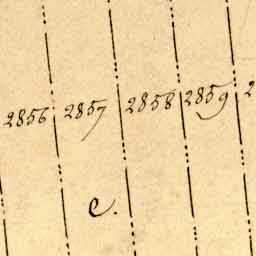 2856 2857 2858 2859 2
C.